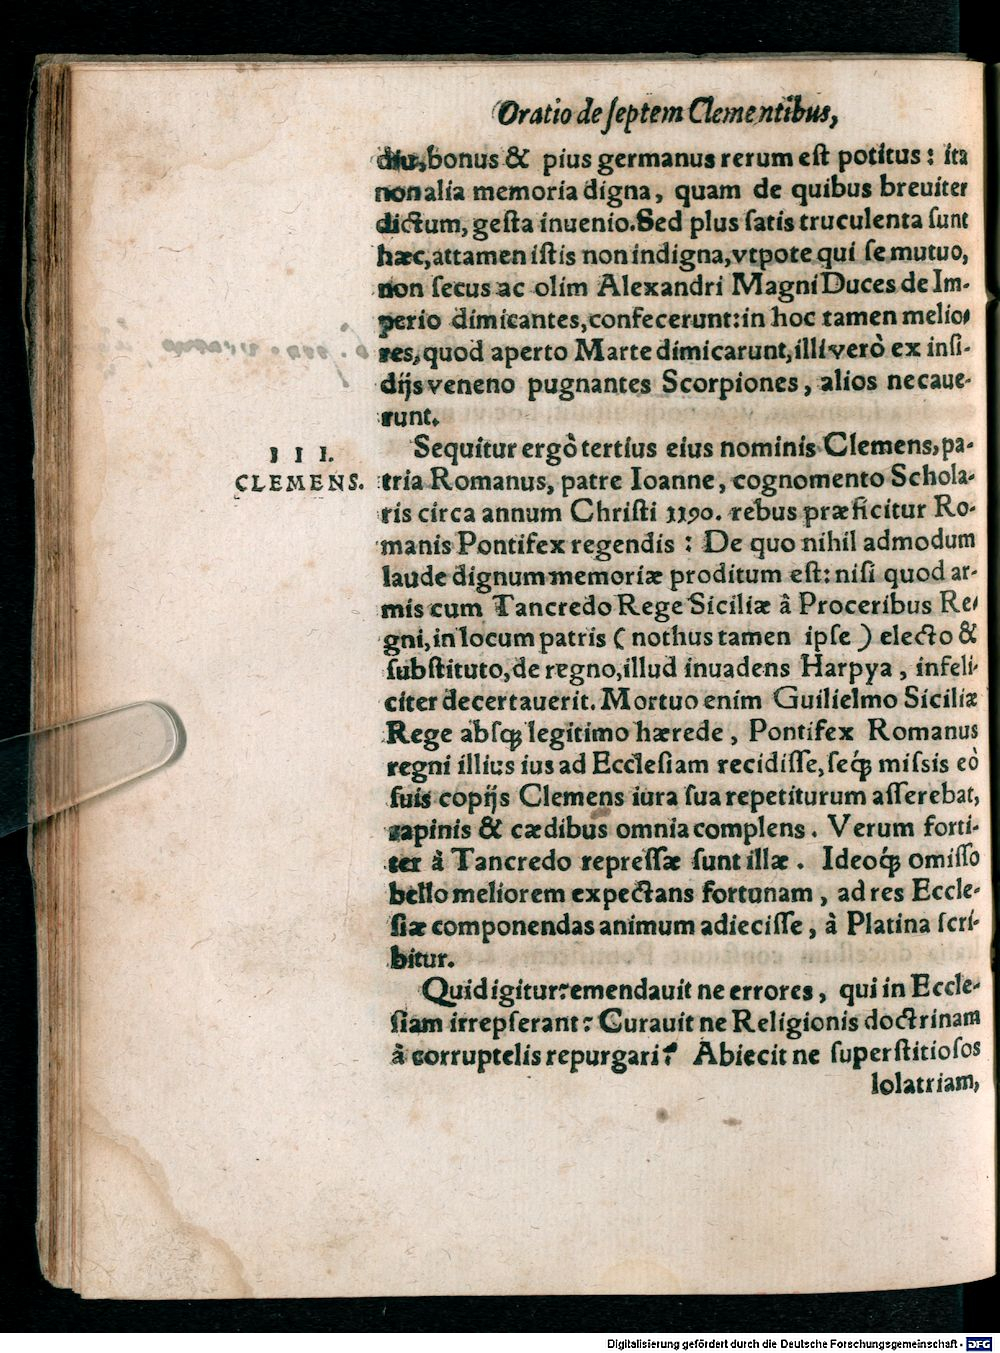 Oratio de ſeptem Clementibus,
diu, bonus & pius germanus rerum eſt potitus: ita
non alia memoria digna, quam de quibus breuiter
dictum, geſta inuenio. Sed plus ſatis truculenta ſunt
hæc, attamen iſtis non indigna, vtpote qui ſe mutuo,
non ſecus ac olim Alexandri Magni Duces de Im-
perio dimicantes, confecerunt: in hoc tamen melio-
res, quod aperto Marte dimicarunt, illi verò ex inſi-
dijs veneno pugnantes Scorpiones, alios necaue-
runt.
III.
CLEMENS.
Sequitur ergò tertius eius nominis Clemens, pa-
tria Romanus, patre Ioanne, cognomento Schola-
ris circa annum Chriſti 1190. rebus præficitur Ro-
manis Pontifex regendis: De quo nihil admodum
laude dignum memoriæ proditum eſt: niſi quod ar-
mis cum Tancredo Rege Siciliæ â Proceribus Re-
gni, in locum patris (nothus tamen ipſe) electo &
ſubſtituto, de regno, illud inuadens Harpya, infeli-
citer decertauerit. Mortuo enim Guilielmo Siciliæ
Rege abſq; legitimo hærede, Pontifex Romanus
regni illius ius ad Eccleſiam recidiſſe, ſeq́; miſsis eò
ſuis copijs Clemens iura ſua repetiturum aſſerebat,
rapinis & cædibus omnia complens. Verum forti-
ter à Tancredo repreſſæ ſunt illæ. Ideoq́; omiſſo
bello meliorem expectans fortunam, ad res Eccle-
ſiæ componendas animum adieciſſe, à Platina ſcri-
bitur.
Quid igitur? emendauit ne errores, qui in Eccle-
ſiam irrepſerant? Curauit ne Religionis doctrinam
à corruptelis repurgari? Abiecit ne ſuperſtitioſos
lolatriam,
Digitalisierung gefördert durch die Deutsche Forschungsgemeinschaft - DFG